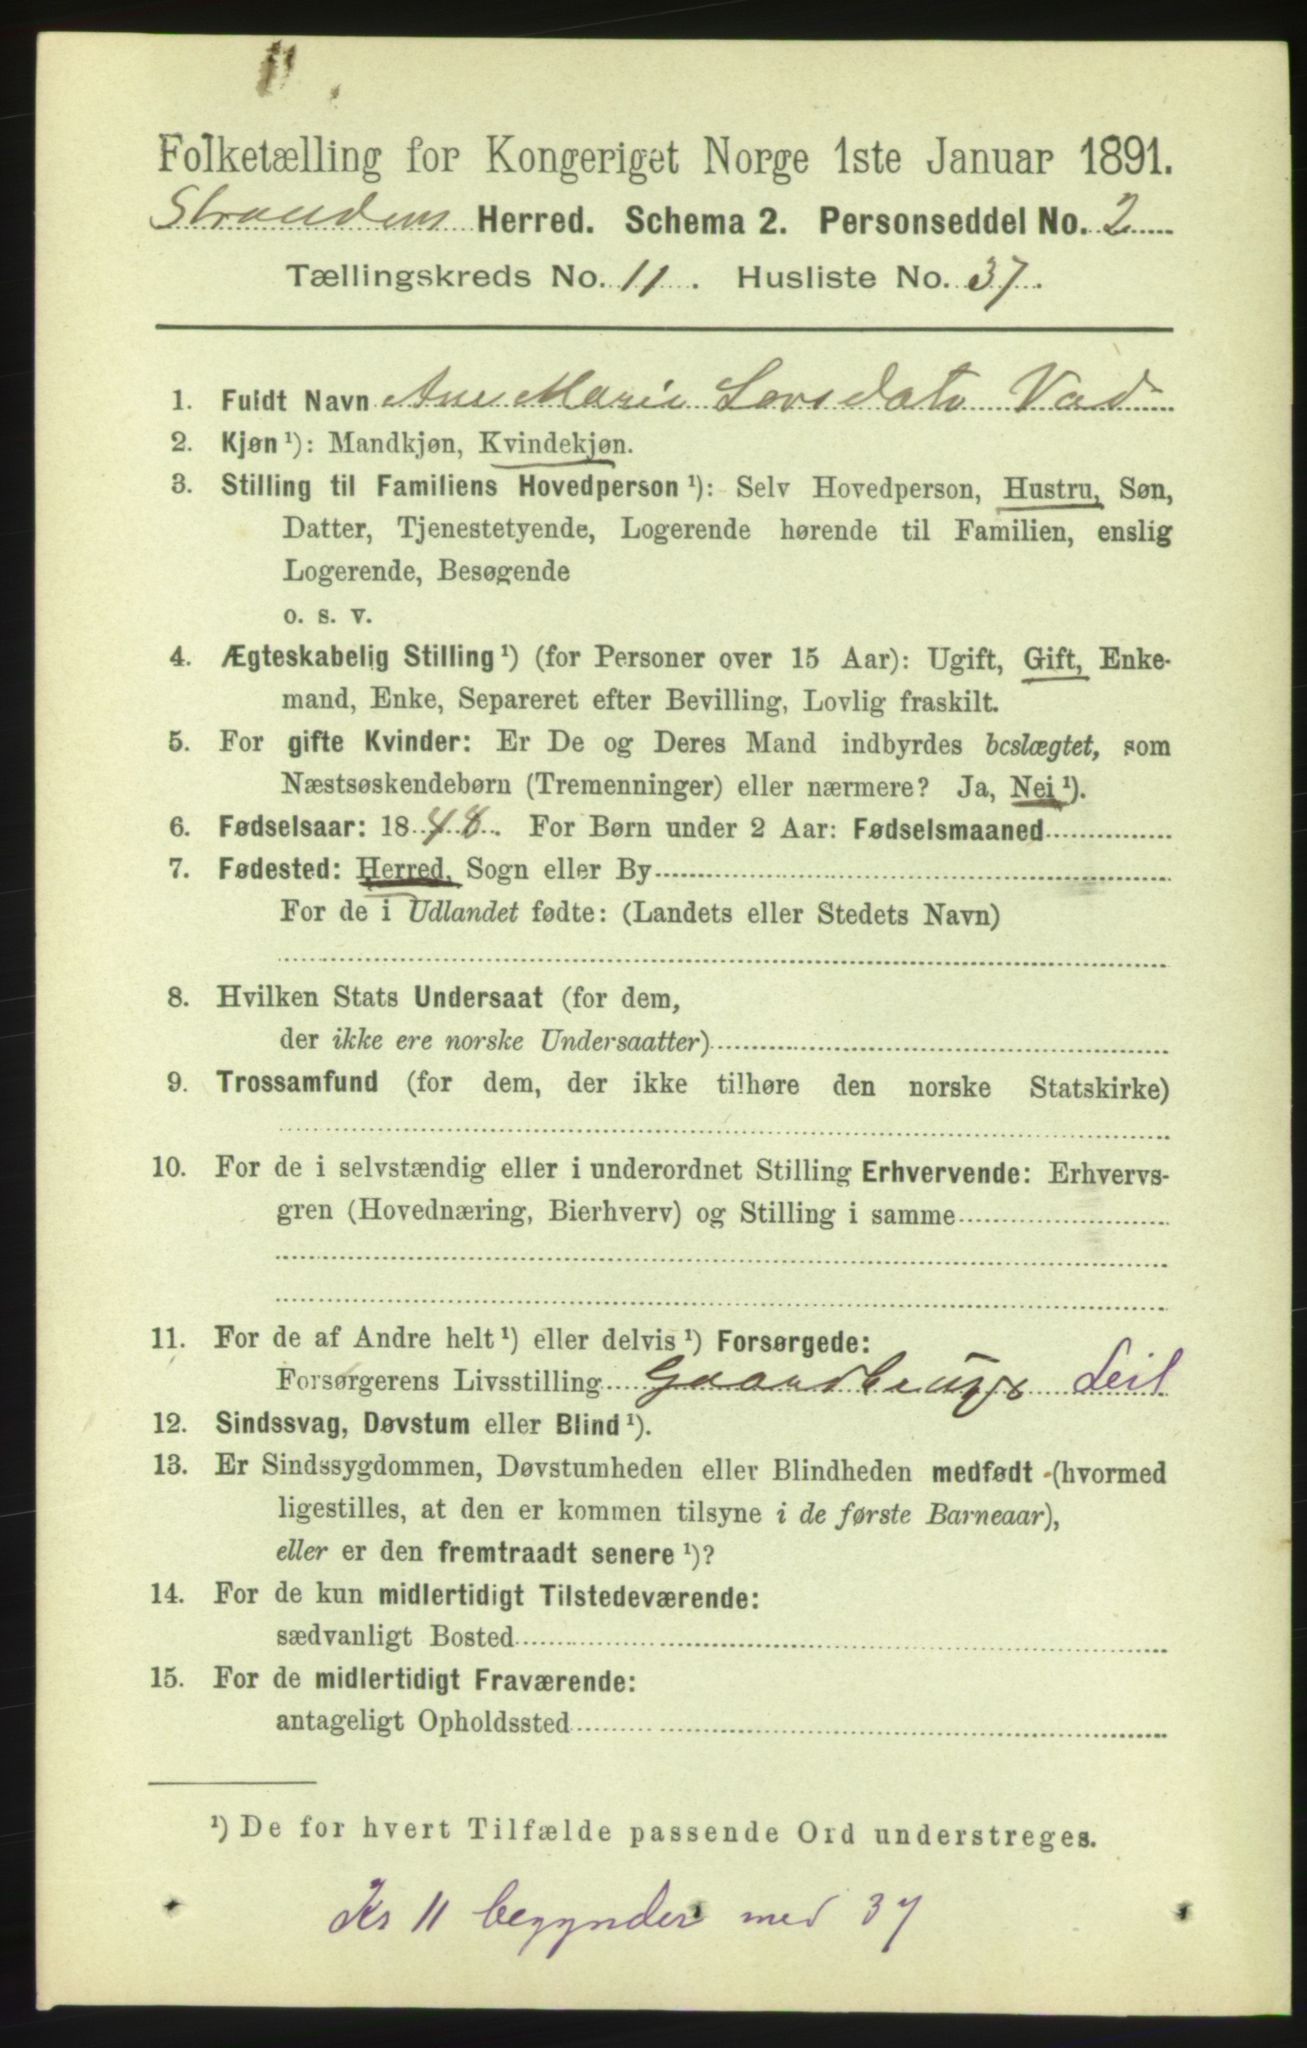 11
Folketælling for Kongeriget Norge 1ste Januar 1891.
Strandens Herred. Schema 2. Personseddel No. 2
Tællingskreds No. 11. Husliste No. 37.
1. Fuldt Navn Ane Marie Larsdatr Vad
2. Kjøn¹): Mandkjøn, Kvindekjøn.
3. Stilling til Familiens Hovedperson¹): Selv Hovedperson, Hustru, Søn,
Datter, Tjenestetyende, Logerende hørende til Familien, enslig
Logerende, Besøgende
o. s. v.
4. Ægteskabelig Stilling¹) (for Personer over 15 Aar): Ugift, Gift, Enke-
mand, Enke, Separeret efter Bevilling, Lovlig fraskilt.
5. For gifte Kvinder: Er De og Deres Mand indbyrdes beslægtet, som
Næstsøskendebørn (Tremenninger) eller nærmere? Ja, Nei¹).
6. Fødselsaar: 1848. For Børn under 2 Aar: Fødselsmaaned
7. Fødested: Herred, Sogn eller By
For de i Udlandet fødte: (Landets eller Stedets Navn)
8. Hvilken Stats Undersaat (for dem,
der ikke ere norske Undersaatter)
9. Trossamfund (for dem, der ikke tilhøre den norske Statskirke)
10. For de i selvstændig eller i underordnet Stilling Erhvervende: Erhvervs-
gren (Hovednæring, Bierhverv) og Stilling i samme
11. For de af Andre helt¹) eller delvis¹) Forsørgede:
Forsørgerens Livsstilling Gaardbruger Leil
12. Sindssvag, Døvstum eller Blind¹).
13. Er Sindssygdommen, Døvstumheden eller Blindheden medfødt (hvormed
ligestilles, at den er kommen tilsyne i de første Barneaar),
eller er den fremtraadt senere¹)?
14. For de kun midlertidigt Tilstedeværende:
sædvanligt Bosted
15. For de midlertidigt Fraværende:
antageligt Opholdssted
¹) De for hvert Tilfælde passende Ord understreges.
Kr 11 begynder med 37